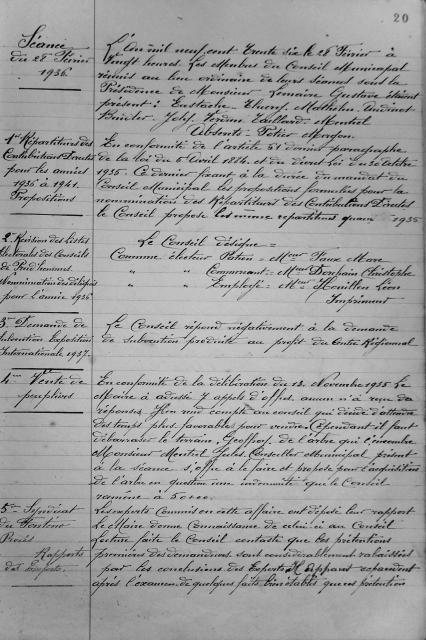 20
Séance
du 28 Février
1936.
L'An mil neuf cent trente six le 28 Février à
vingt heures. Les Membres du Conseil Municipal
réunis au lieu ordinaire de leurs séances sous la
Présidence de Monsieur Lemaire Gustave étaient
présent : Eustache, Mathelin, Audinot
Absents
1° Répartiteurs des
Contributions Directes
pour les années
1936 à 1941.
Propositions
En conformité de l'article 51 dernier paragraphe
de la loi du 5 Avril 1884 et du décret Loi du 30 Octobre
1935. Ce dernier fixant à la durée du mandat du
Conseil Municipal les propositions formelles pour la
nomination des Répartiteurs des Contributions Directes
le Conseil propose les même répartiteurs qu'en 1935
2° Révision des Listes
électorales des Conseils
de Prud'hommes.
Nomination des délégués
pour l'année 1936
Le Conseil désigne =
Comme électeur Patron = Faux Marc
" " Communal = Christophe
" " Employé = Léon
Imprimeur
3° Demande de
Subvention Exposition
Internationale 1937.
Le Conseil répond négativement à la demande
de subvention produite au profit du Centre Régional
4° Vente de
peupliers
En conformité de la délibération du 13 Novembre 1935 Le
Maire a adressé 7 appels d'offres, aucun n'a reçu de
réponses. Il en rend compte au conseil qui décide d'attendre
des temps plus favorables pour vendre. Cependant il faut
débarrasser le terrain de l'arbre qui l'encombre
Monsieur Montiel Jules Conseiller Municipal présent
à la séance s'offre à le faire et propose pour l'acquisition
de l'arbre en question une indemnité que le Conseil
ramène à
5° Syndicat
du
Procès
Rapports
des Experts.
Les experts Commis en cette affaire ont déposé leur rapport
Le Maire donne Connaissance de celui ci au Conseil
Lecture faite le Conseil constate que les prétentions
premières des demandeurs sont considérablement rabaissées
par les conclusions des Experts. Il apparaît cependant
après l'examen de quelques faits bien établis que ces prétention